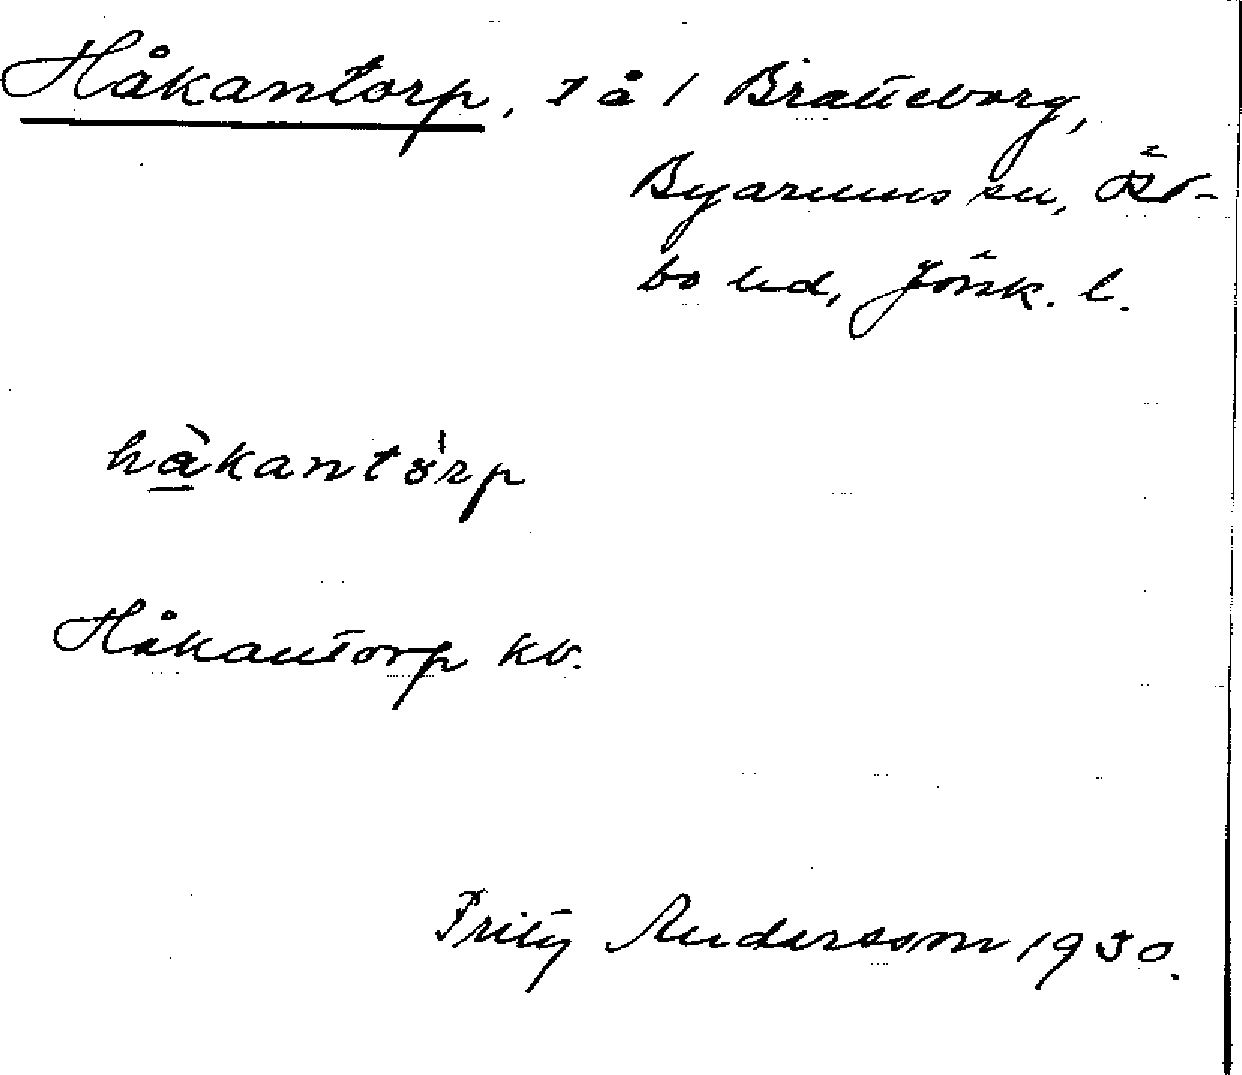 Håkantorp, t å 1 Bratteborg,
Byarums sn, Öst-
bo hd, Jönk. l.
håkantórp
Håkantorp kv.
Fritz Andersson 1930.